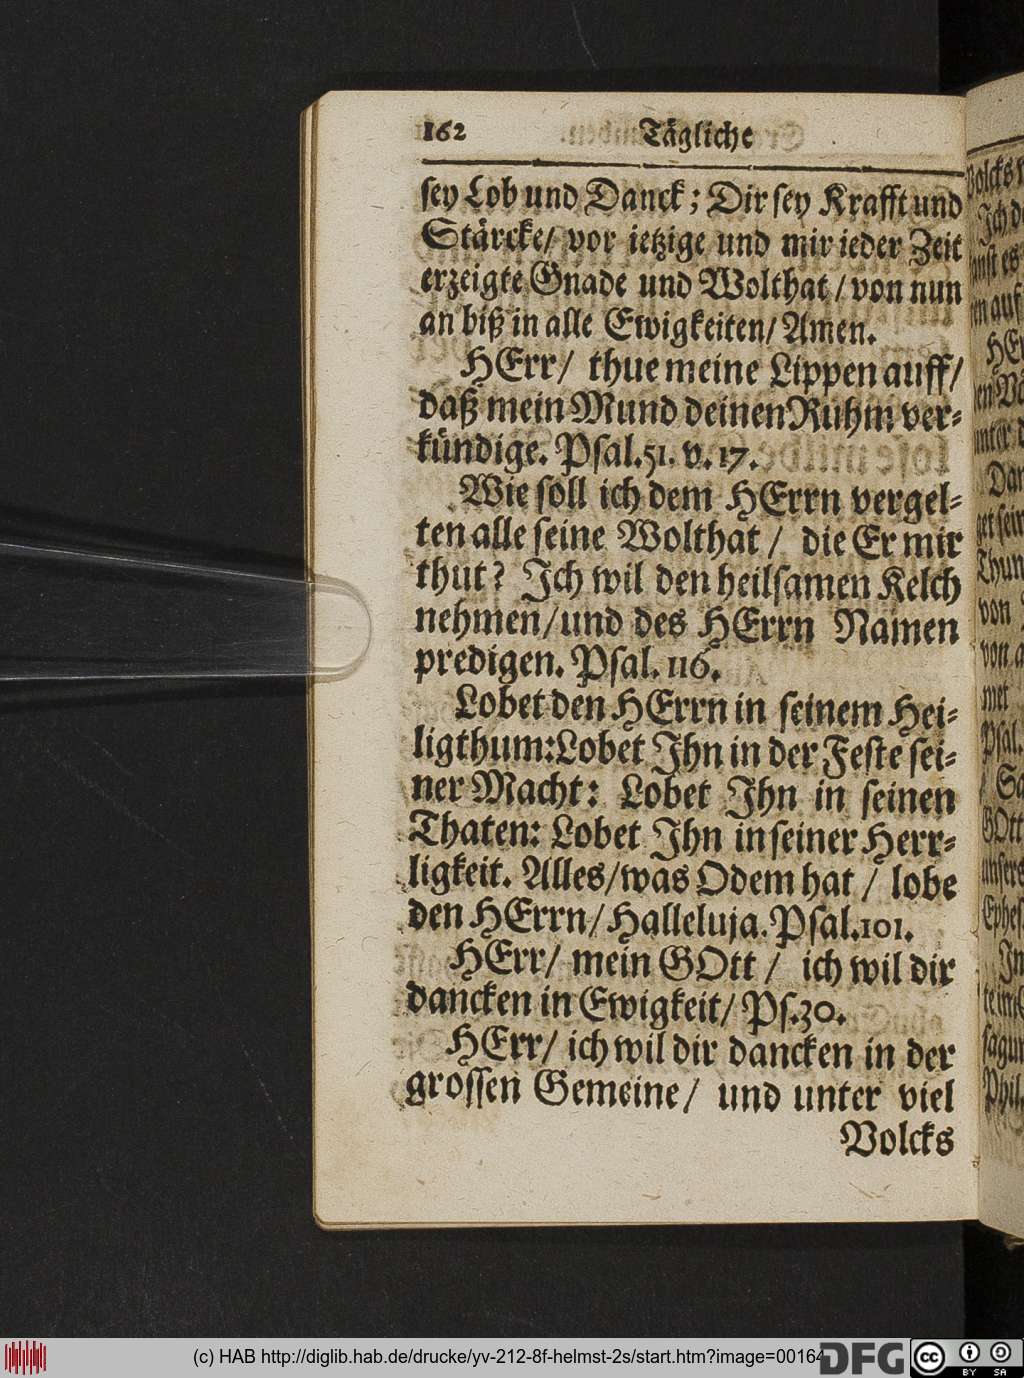 162 Tägliche
sey Lob und Danck; Dir sey Krafft und
Stärcke/ vor ietzige und mir ieder Zeit
erzeigte Gnade und Wolthat/ von nun
an biß in alle Ewigkeiten/ Amen.
HErr/ thue meine Lippen auff/
daß mein Mund deinen Ruhm ver-
kündige. Psal. 51. v. 17.
Wie soll ich dem HErrn vergel-
ten alle seine Wolthat/ die Er mir
thut? Ich wil den heilsamen Kelch
nehmen/ und des HErrn Namen
predigen. Psal. 116.
Lobet den HErrn in seinem Hei-
ligthum: Lobet Ihn in der Feste sei-
ner Macht: Lobet Ihn in seinen
Thaten: Lobet Ihn in seiner Herr-
ligkeit. Alles/ was Odem hat/ lobe
den HErrn/ Halleluja. Psal. 101.
HErr/ mein GOtt/ ich wil dir
dancken in Ewigkeit/ Ps. 30.
HErr/ ich wil dir dancken in der
grossen Gemeine/ und unter viel
Volcks
(c) HAB http://diglib.hab.de/drucke/yv-212-8f-helmst-2s/start.htm?image=00164
DFG
cc BY SA